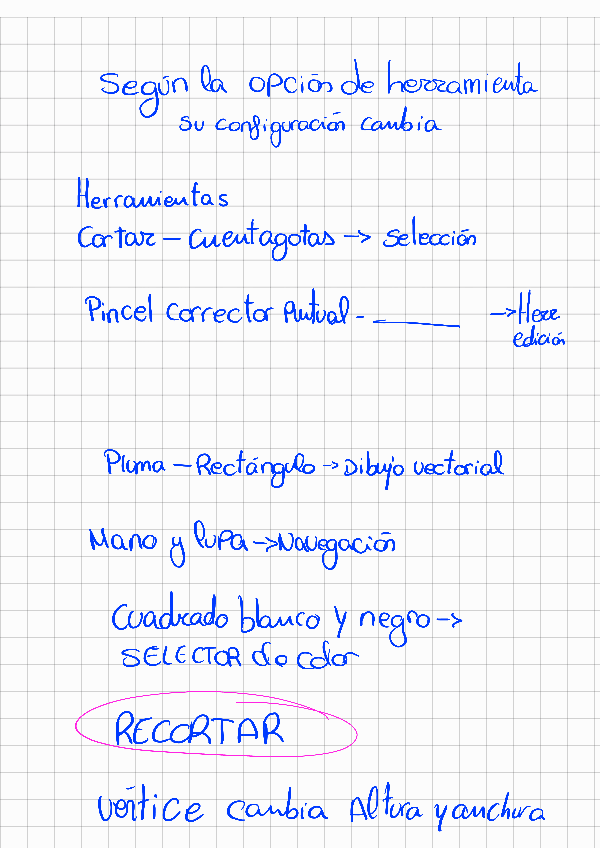 Según la opción de herramienta
su configuración cambia
Herramientas
Cortar – Cuentagotas -> Selección
Pincel Corrector Puntual - ______ -> Herr
edición
Pluma – Rectángulo -> Dibujo vectorial
Mano y lupa -> Navegación
Cuadrado blanco y negro ->
SELECTOR de color
RECORTAR
Vértice cambia Altura y anchura